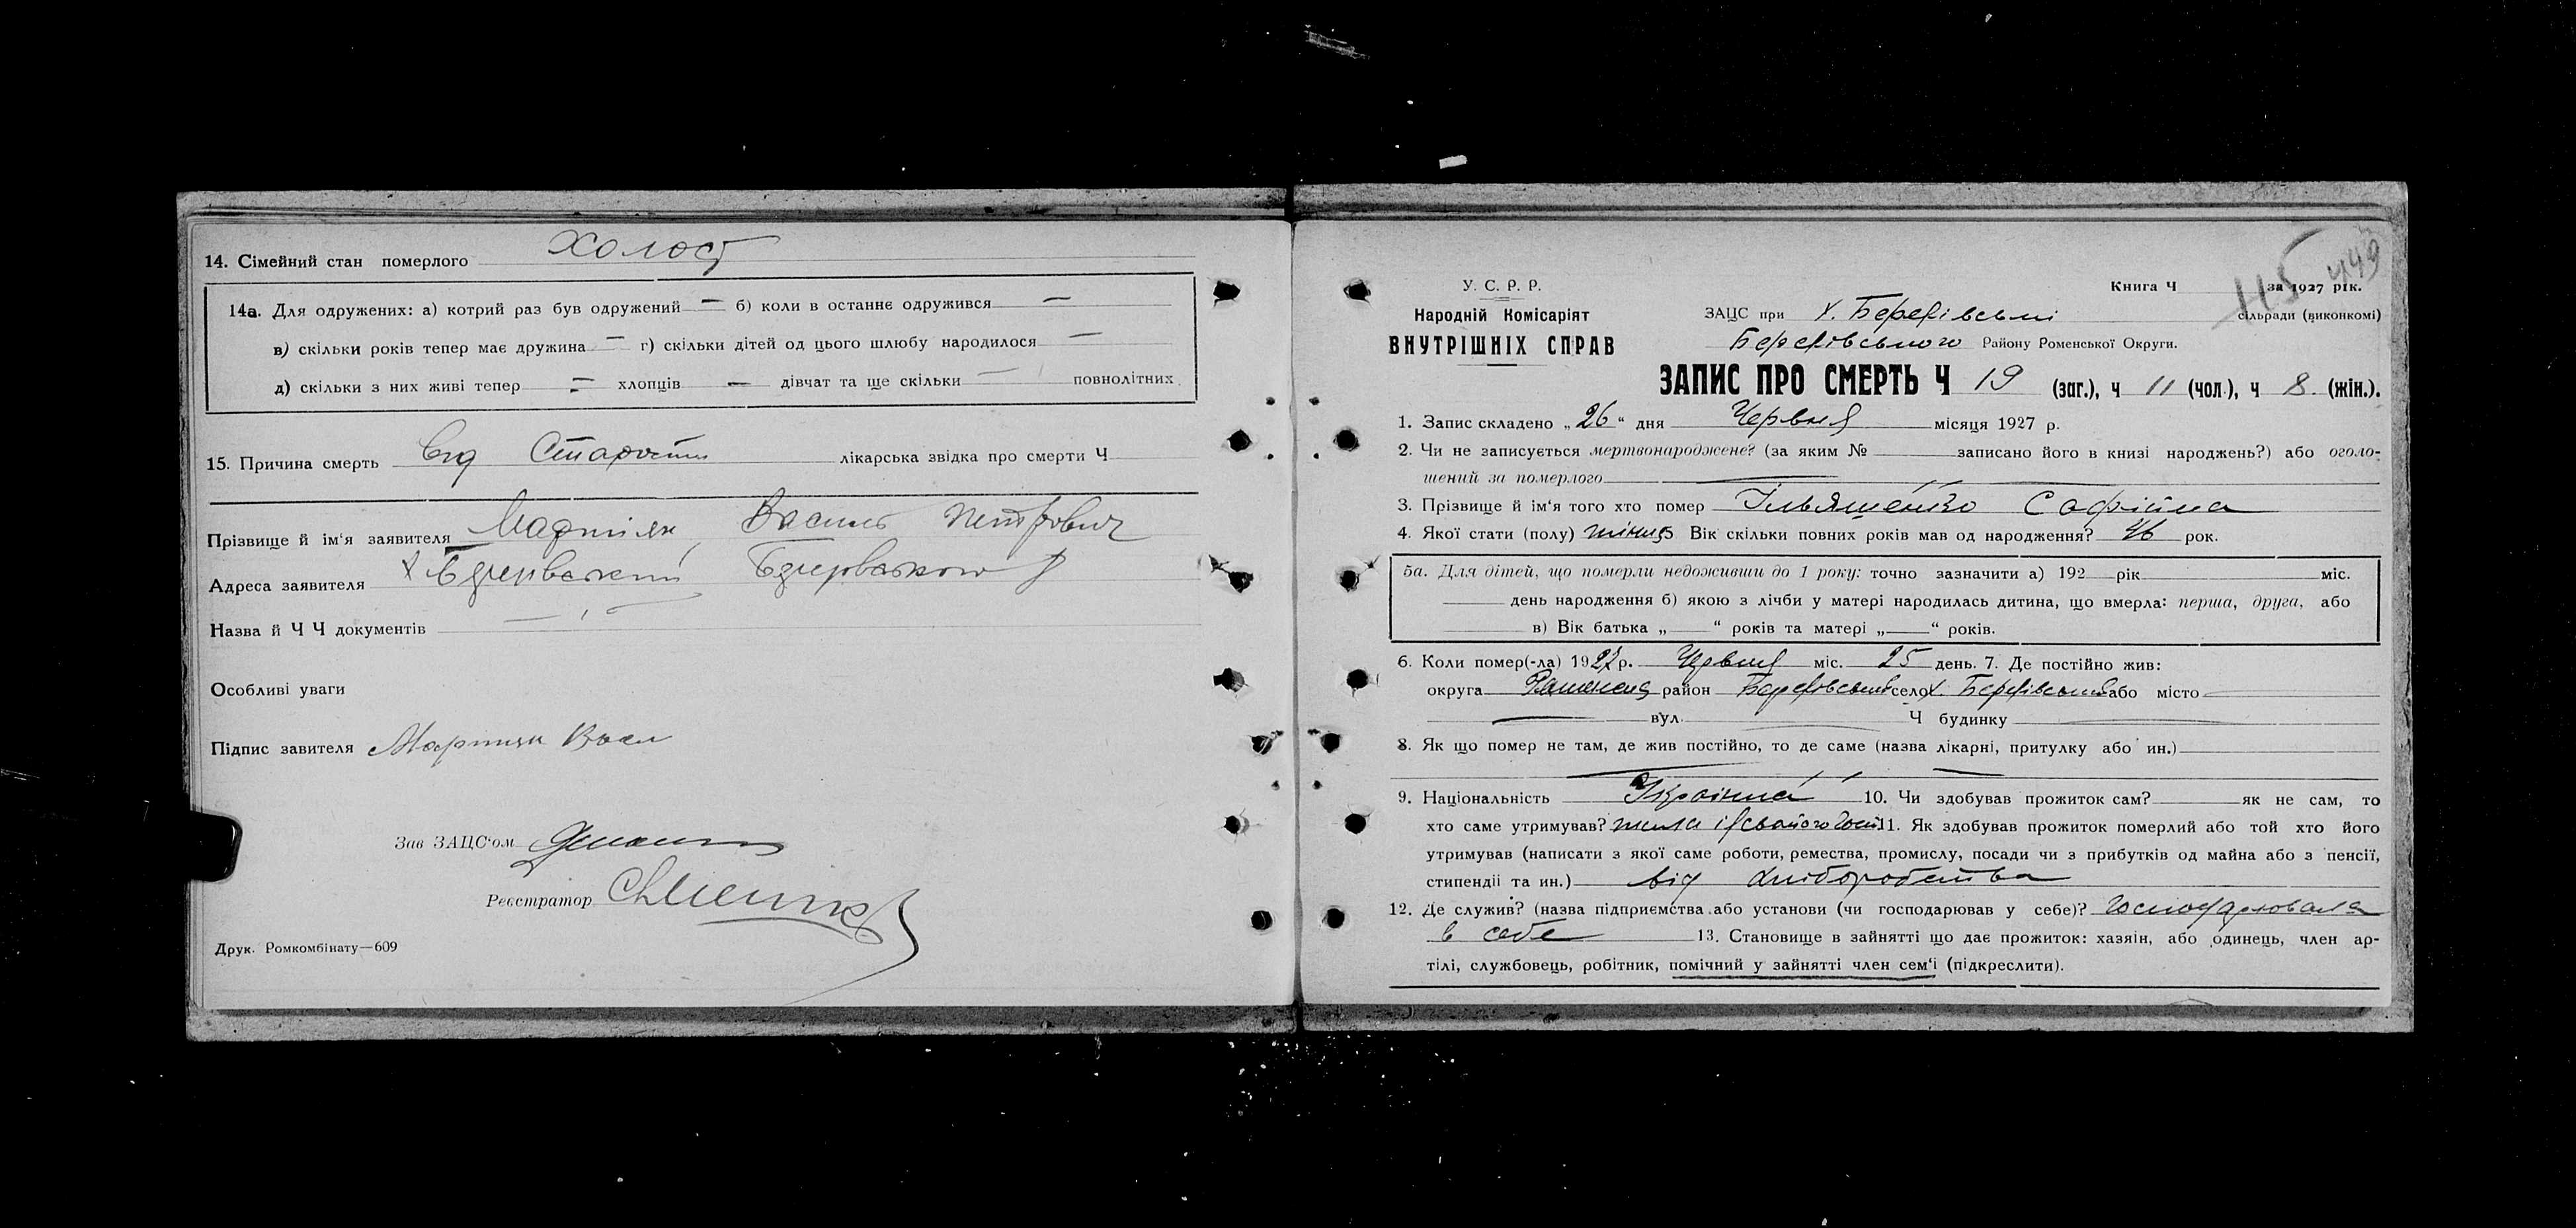 14. Сімейний стан померлого Холост
14а. Для одружених: а) котрий раз був одружений — б) коли в останнє одружився —
в) скільки років тепер має дружина — г) скільки дітей од цього шлюбу народилося —
д) скільки з них живі тепер — хлопців — дівчат та ще скільки — повнолітних
15. Причина смерть Від Старости лікарська звідка про смерти Ч
Прізвище й ім'я заявителя Василь Петрович
Адреса заявителя
Назва й Ч Ч документів —
Особливі уваги
Підпис завителя
Зав ЗАЦС'ом
Реєстратор
Друк. Ромкомбінату—609
115 449
У. С. Р. Р.
Народній Комісаріят
ВНУТРІШНІХ СПРАВ
Книга Ч за 1927 рік.
ЗАЦС при Х. Березівські сільради (виконкомі)
Березівського Району Роменської Округи.
ЗАПИС ПРО СМЕРТЬ Ч 19 (заг.), ч 11 (чол.), ч 8. (жін.).
1. Запис складено „26“ дня Червня місяця 1927 р.
2. Чи не записується мертвонароджене? (за яким № записано його в книзі народжень?) або оголо-
шений за померлого —
3. Прізвище й ім'я того хто помер Ільяшенко Софійна
4. Якої стати (полу) 5 Вік скільки повних років мав од народження? 46 рок.
5а. Для дітей, що померли недоживши до 1 року: точно зазначити а) 192 рік міс.
день народження б) якою з лічби у матері народилась дитина, що вмерла: перша, друга, або
в) Вік батька „ “ років та матері „ “ років.
6. Коли помер(-ла) 1927 р. Червня міс. 25 день. 7. Де постійно жив:
округа Роменська район Березівський село Х. Березівський або місто
— вул. Ч будинку
8. Як що помер не там, де жив постійно, то де саме (назва лікарні, притулку або ин.)
9. Національність Україн 10. Чи здобував прожиток сам? як не сам, то
хто саме утримував? жила із свойого 11. Як здобував прожиток померлий або той хто його
утримував (написати з якої саме роботи, ремества, промислу, посади чи з прибутків од майна або з пенсії,
стипендії та ин.) від хліборобства
12. Де служив? (назва підприємства або установи (чи господарював у себе)? Господарювала
в себе 13. Становище в зайнятті що дає прожиток: хазяїн, або одинець, член ар-
тілі, службовець, робітник, помічний у зайнятті член сем'ї (підкреслити).